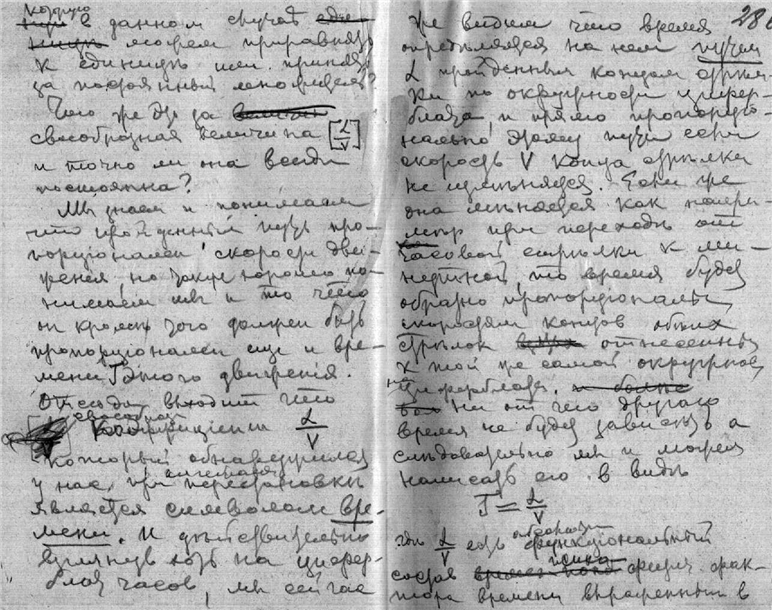 которую
в данном случае
можем приравнять
к единице или принять
за постоянный множитель?
Что же это за
своеобразная величина [L/V]
и точно ли она всегда
постоянна?
Мы знаем и понимаем
что пройденный путь про-
порцiонален скорости дви-
женiя, но также хорошо по-
нимаем мы и то что
он кроме того должен быть
пропорцiонален еще и вре-
мени этого движенiя.
Отсюда выходит что
свободный
коэффицiент L/V
который обнаружился
у нас при перестановке
является символом вре-
мени. И действительно
взглянув хоть на цифер-
блат часов, мы сейчас
же видим что время
определяется на нем путем
L пройденным концом стрел-
ки по окружности цифер-
блата и прямо пропорцiо-
нально этому пути если
скорость V конца стрелки
не изменяется. Если же
она меняется как напри-
мер при переходе от
часовой стрелки к ми-
нутной, то время будет
обратно пропорцiонально
скоростям концов обеих
стрелок отнесенных
к той же самой окружности
циферблата.
Ни от чего другого
время не будет зависеть а
следовательно мы и можем
написать его в виде
T = L/V
где L/V есть функцiональный
состав физич. фак-
тора времени выраженный в